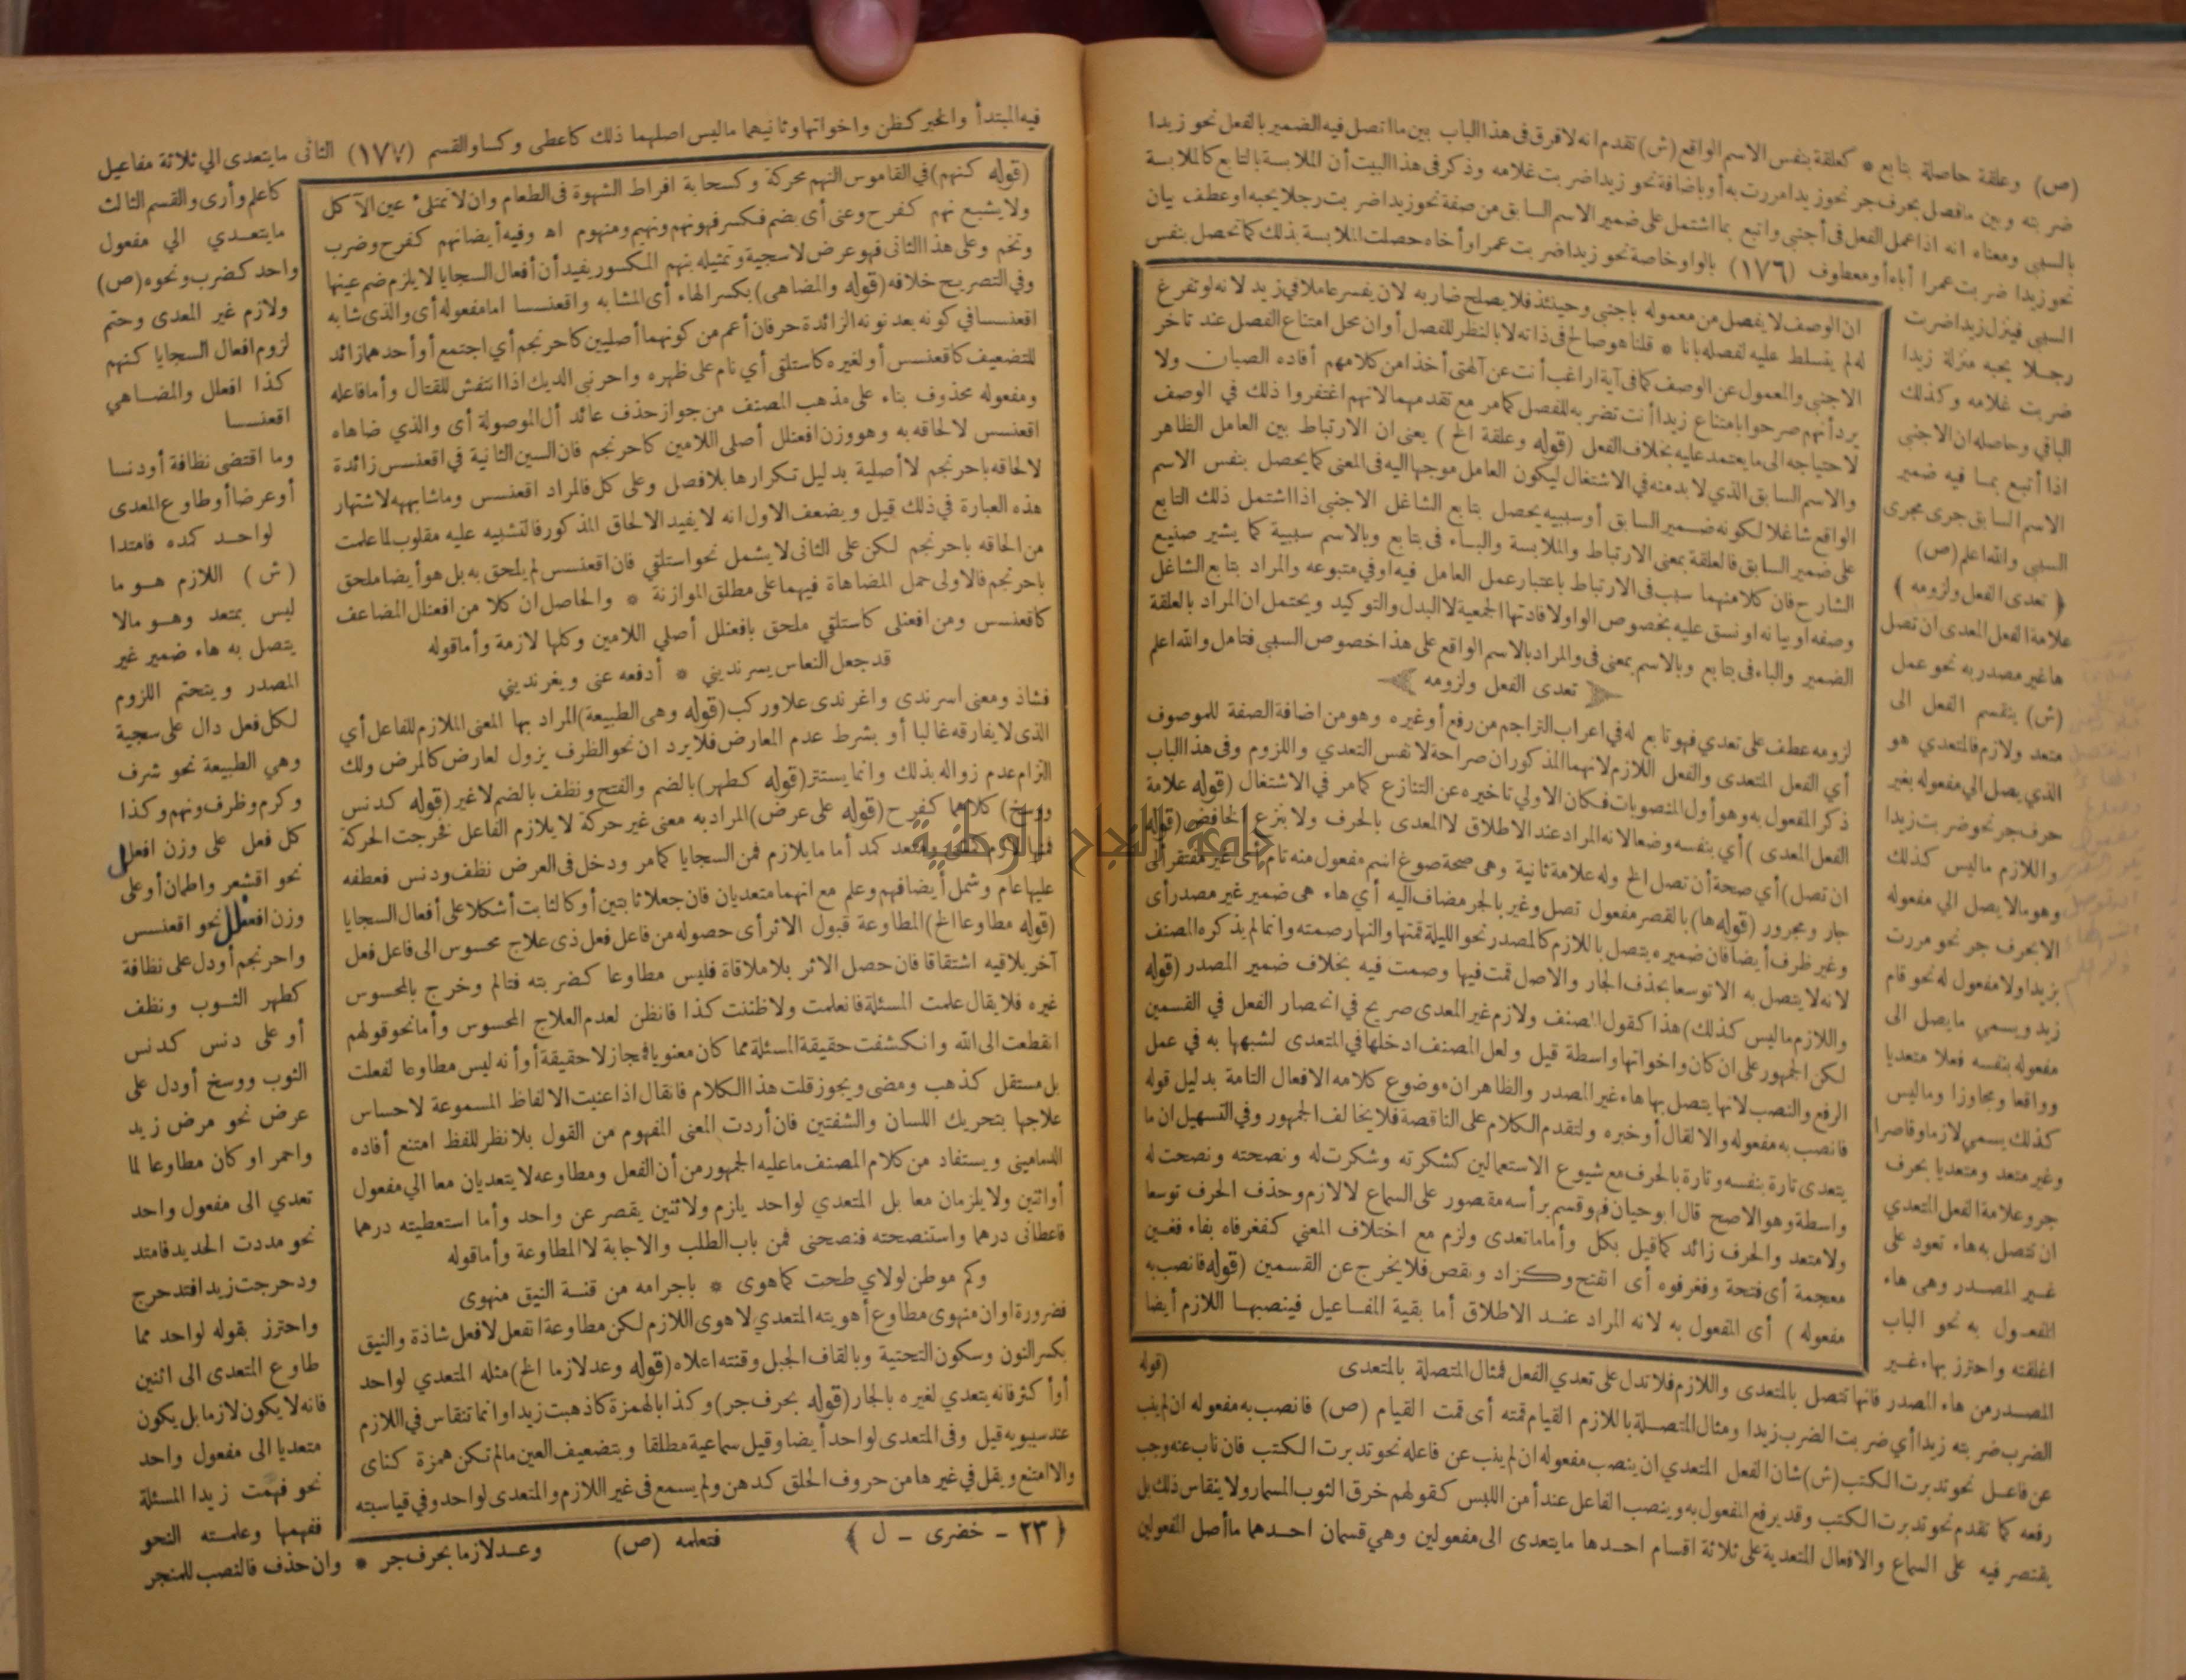 (ص) وعلقة حاصلة بتابع * كعلقة بنفس الاسم الواقع (ش) تقدم انه لا فرق فى هذا الباب بين ما اتصل فيه الضمير بالفعل نحو زيدا
ضربته وبين ما فصل بحرف جر نحو زيدا مررت به أو باضافة نحو زيدا ضربت غلامه وذكر فى هذا البيت أن الملابسة بالتابع كالملابسة
بالسببى ومعناه انه اذا عمل الفعل فى أجنبى واتبع بما اشتمل على ضمير الاسم السابق من صفة نحو زيدا ضربت رجلا يحبه او عطف بيان
نحو زيدا ضربت عمرا أباه أو معطوف (١٧٦) بالواو خاصة نحو زيدا ضربت عمرا وأخاه حصلت الملابسة بذلك كما تحصل بنفس
السببى فينزل زيدا ضربت
رجلا يحبه منزلة زيدا
ضربت غلامه وكذلك
الباقي وحاصله ان الاجنبى
اذا أتبع بما فيه ضمير
الاسم السابق جرى مجرى
السببى والله اعلم (ص)
﴿ تعدى الفعل ولزومه ﴾
علامة الفعل المعدى ان تصل
ها غير مصدر به نحو عمل
(ش) ينقسم الفعل الى
متعد ولازم فالمتعدي هو
الذي يصل الي مفعوله بغير
حرف جر نحو ضربت زيدا
واللازم ماليس كذلك
وهو مالا يصل الي مفعوله
الا بحرف جر نحو مررت
بزيد اولا مفعول له نحو قام
زيد ويسمي ما يصل الى
مفعوله بنفسه فعلا متعديا
وواقعا ومجاوزا وماليس
كذلك يسمي لازما وقاصرا
وغير متعد ومتعديا بحرف
جر وعلامة الفعل المتعدي
ان تتصل به هاء تعود على
غير المصدر وهى هاء
المفعول به نحو الباب
اغلقته واحترز بهاء غير
ان الوصف لا يفصل من معموله باجنبى وحينئذ فلا يصلح ضاربه لان يفسر عاملا في زيد لانه لو تفرغ
له لم يتسلط عليه لفصله بانا * قلنا هو صالح فى ذاته لا بالنظر للفصل أو ان محل امتناع الفصل عند تأخر
الاجنبى والمعمول عن الوصف كما فى آية اراغب أنت عن آلهتى أخذا من كلامهم أفاده الصبان ولا
يرد أنهم صرحوا بامتناع زيدا أنت تضربه للفصل كما مر مع تقدمهما لانهم اغتفروا ذلك في الوصف
لاحتياجه الى ما يعتمد عليه بخلاف الفعل (قوله وعلقة الخ) يعنى ان الارتباط بين العامل الظاهر
والاسم السابق الذي لا بد منه في الاشتغال ليكون العامل موجها اليه فى المعنى كما يحصل بنفس الاسم
الواقع شاغلا لكونه ضمير السابق أو سببيه يحصل بتابع الشاغل الاجنبى اذا اشتمل ذلك التابع
على ضمير السابق فالعلقة بمعنى الارتباط والملابسة والباء فى بتابع وبالاسم سببية كما يشير صنيع
الشارح فان كلا منهما سبب فى الارتباط باعتبار عمل العامل فيه او في متبوعه والمراد بتابع الشاغل
وصفه او بيانه او نسق عليه بخصوص الواو لافادتها الجمعية لا البدل والتوكيد ويحتمل ان المراد بالعلقة
الضمير والباء فى بتابع وبالاسم بمعنى فى والمراد بالاسم الواقع على هذا خصوص السببى فتامل والله اعلم
تعدى الفعل ولزومه
لزومه عطف على تعدي فهو تابع له في اعراب التراجم من رفع أو غيره وهو من اضافة الصفة للموصوف
أي الفعل المتعدى والفعل اللازم لانهما المذكوران صراحة لا نفس التعدي واللزوم وفى هذا الباب
ذكر المفعول به وهو أول المنصوبات فكان الاولي تاخيره عن التنازع كما مر في الاشتغال (قوله علامة
الفعل المعدى) أي بنفسه وضعا لانه المراد عند الاطلاق لا المعدى بالحرف ولا بنزع الخافض (قوله
ان تصل) أي صحة أن تصل الخ وله علامة ثانية وهى صحة صوغ اسم مفعول منه تام أى غير مفتقر الى
جار ومجرور (قوله ها) بالقصر مفعول تصل وغير بالجر مضاف اليه أي هاء هى ضمير غير مصدر أى
وغير ظرف أيضا فان ضميره يتصل باللازم كالمصدر نحو الليلة قمتها والنهار صمته وانما لم يذكره المصنف
لانه لا يتصل به الا توسعا بحذف الجار والاصل قمت فيها وصمت فيه بخلاف ضمير المصدر (قوله
واللازم ماليس كذلك) هذا كقول المصنف ولازم غير المعدى صريح في انحصار الفعل في القسمين
لكن الجمهور على ان كان واخواتها واسطة قيل ولعل المصنف ادخلها في المتعدى لشبهها به في عمل
الرفع والنصب لانها يتصل بها هاء غير المصدر والظاهر ان موضوع كلامه الافعال التامة بدليل قوله
فانصب به مفعوله والا لقال أو خبره ولتقدم الكلام على الناقصة فلا يخالف الجمهور وفي التسهيل ان ما
يتعدى تارة بنفسه وتارة بالحرف مع شيوع الاستعمالين كشكرته وشكرت له ونصحته ونصحت له
واسطة وهو الاصح قال ابو حيان فهو قسم برأسه مقصور على السماع لا لازم وحذف الحرف توسعا
ولا متعد والحرف زائد كما قيل بكل وأما ما تعدى ولزم مع اختلاف المعني كفغرفاه بفاء فغين
معجمة أى فتحة وفغر فوه أى انفتح وكزاد ونقص فلا يخرج عن القسمين (قوله فانصب به
مفعوله) أى المفعول به لانه المراد عند الاطلاق أما بقية المفاعيل فينصبها اللازم أيضا
(قوله
المصدر من هاء المصدر فانها تتصل بالمتعدى واللازم فلا تدل على تعدي الفعل فمثال المتصلة بالمتعدى
الضرب ضربته زيدا أي ضربت الضرب زيدا ومثال المتصلة باللازم القيام قمته أى قمت القيام (ص) فانصب به مفعوله ان لم ينب
عن فاعل نحو تدبرت الكتب (ش) شان الفعل المتعدي ان ينصب مفعوله ان لم ينب عن فاعله نحو تدبرت الكتب فان ناب عنه وجب
رفعه كما تقدم نحو تدبرت الكتب وقد يرفع المفعول به وينصب الفاعل عند أمن اللبس كقولهم خرق الثوب المسمار ولا ينقاس ذلك بل
يقتصر فيه على السماع والافعال المتعدية على ثلاثة اقسام احدها ما يتعدى الى مفعولين وهي قسمان احدهما ما أصل المفعولين
فيه المبتدأ والخبر كظن واخواتها وثانيهما ماليس اصلهما ذلك كاعطى وكسا والقسم (١٧٧) الثانى ما يتعدى الي ثلاثة مفاعيل
كاعلم وأرى والقسم الثالث
ما يتعدي الي مفعول
واحد كضرب ونحوه (ص)
ولازم غير المعدى وحتم
لزوم افعال السجايا كنهم
كذا افعلل والمضاهي
اقعنسسا
وما اقتضى نظافة أو دنسا
أو عرضا أو طاوع المعدى
لواحد كمده فامتدا
(ش) اللازم هو ما
ليس بمتعد وهو مالا
يتصل به هاء ضمير غير
المصدر ويتحتم اللزوم
لكل فعل دال على سجية
وهي الطبيعة نحو شرف
وكرم وظرف ونهم وكذا
كل فعل على وزن افعلل
نحو اقشعر واطمأن أو على
وزن افعنلل نحو اقعنسس
واحرنجم أو دل على نظافة
كطهر الثوب ونظف
أو على دنس كدنس
الثوب ووسخ أو دل على
عرض نحو مرض زيد
واحمر او كان مطاوعا لما
تعدي الى مفعول واحد
نحو مددت الحديد فامتد
ودحرجت زيدا فتدحرج
واحترز بقوله لواحد مما
طاوع المتعدى الى اثنين
فانه لا يكون لازما بل يكون
متعديا الى مفعول واحد
نحو فهمت زيدا المسئلة
ففهمها وعلمته النحو
(قوله كنهم) في القاموس النهم محركة وكسحابة افراط الشهوة فى الطعام وان لا تمتلئ عين الآكل
ولا يشبع نهم كفرح وعنى أى بضم فكسر فهو نهم ونهيم ومنهوم اه وفيه أيضا نهم كفرح وضرب
وتخم وعلى هذا الثانى فهو عرض لا سجية وتمثيله بنهم المكسور يفيد أن أفعال السجايا لا يلزم ضم عينها
وفي التصريح خلافه (قوله والمضاهى) بكسر الهاء أى المشابه واقعنسسا اما مفعوله أى والذى شابه
اقعنسسا في كونه بعد نونه الزائدة حرفان أعم من كونهما أصليين كاحرنجم أي اجتمع أو أحدهما زائد
للتضعيف كاقعنسس أو لغيره كاستلقى أي نام على ظهره واحرنبى الديك اذا انتفش للقتال وأما فاعله
ومفعوله محذوف بناء على مذهب المصنف من جواز حذف عائد أل الموصولة أى والذي ضاهاه
اقعنسس لالحاقه به وهو وزن افعنلل أصلي اللامين كاحرنجم فان السين الثانية في اقعنسس زائدة
لالحاقه باحرنجم لا أصلية بدليل تكرارها بلا فصل وعلى كل فالمراد اقعنسس وما شابهه لاشتهار
هذه العبارة في ذلك قيل ويضعف الاول انه لا يفيد الالحاق المذكور فالتشبيه عليه مقلوب لما علمت
من الحاقه باحرنجم لكن على الثانى لا يشمل نحو استلقي فان اقعنسس لم يلحق به بل هو أيضا ملحق
باحرنجم فالاولى حمل المضاهاة فيهما على مطلق الموازنة * والحاصل ان كلا من افعنلل المضاعف
كاقعنسس ومن افعنلى كاستلقي ملحق بافعنلل أصلي اللامين وكلها لازمة وأما قوله
قد جعل النعاس يسرنديني * أدفعه عنى ويغرنديني
فشاذ ومعنى اسرندى واغرندى علا وركب (قوله وهى الطبيعة) المراد بها المعنى الملازم للفاعل أي
الذى لا يفارقه غالبا أو بشرط عدم المعارض فلا يرد ان نحو الظرف يزول لعارض كالمرض ولك
التزام عدم زواله بذلك وانما يستتر (قوله كطهر) بالضم والفتح ونظف بالضم لا غير (قوله كدنس
ووسخ) كلاهما كفرح (قوله على عرض) المراد به معنى غير حركة لا يلازم الفاعل فخرجت الحركة
كمد أما ما يلازم فمن السجايا كما مر ودخل فى العرض نظف ودنس فعطفه
عليها عام وشمل أيضا فهم وعلم مع انهما متعديان فان جعلا ثابتين أو كالثابت أشكلا على أفعال السجايا
(قوله مطاوعا الخ) المطاوعة قبول الاثر أى حصوله من فاعل فعل ذى علاج محسوس الى فاعل فعل
آخر يلاقيه اشتقاقا فان حصل الاثر بلا ملاقاة فليس مطاوعا كضربته فتالم وخرج بالمحسوس
غيره فلا يقال علمت المسئلة فانعلمت ولا ظننت كذا فانظن لعدم العلاج المحسوس وأما نحو قولهم
انقطعت الى الله وانكشفت حقيقة المسئلة مما كان معنويا فمجاز لا حقيقة أو أنه ليس مطاوعا لفعلت
بل مستقل كذهب ومضى ويجوز قلت هذا الكلام فانقال اذا عنيت الالفاظ المسموعة لاحساس
علاجها بتحريك اللسان والشفتين فان أردت المعنى المفهوم من القول بلا نظر للفظ امتنع أفاده
الدمامينى ويستفاد من كلام المصنف ما عليه الجمهور من أن الفعل ومطاوعه لا يتعديان معا الي مفعول
أو اثنين ولا يلزمان معا بل المتعدي لواحد يلزم ولاثنين يقصر عن واحد وأما استعطيته درهما
فاعطانى درهما واستنصحته فنصحنى فمن باب الطلب والاجابة لا المطاوعة وأما قوله
وكم موطن لولاي طحت كما هوى * باجرامه من قنة النيق منهوى
فضرورة او ان منهوى مطاوع أهويته المتعدي لا هوى اللازم لكن مطاوعة انفعل لافعل شاذة والنيق
بكسر النون وسكون التحتية وبالقاف الجبل وقنته اعلاه (قوله وعد لازما الخ) مثله المتعدي لواحد
أو أكثر فانه يتعدي لغيره بالجار (قوله بحرف جر) وكذا بالهمزة كاذهبت زيدا وانما تنقاس في اللازم
عند سيبويه قيل وفى المتعدى لواحد أيضا وقيل سماعية مطلقا وبتضعيف العين مالم تكن همزة كناى
والا امتنع ويقل في غيرها من حروف الحلق كدهن ولم يسمع فى غير اللازم والمتعدى لواحد وفي قياسيته
فتعلمه (ص) وعد لازما بحرف جر * وان حذف فالنصب للمنجر
﴿ ٢٣ - خضرى - ل ﴾
جامعة النجاح الوطنية